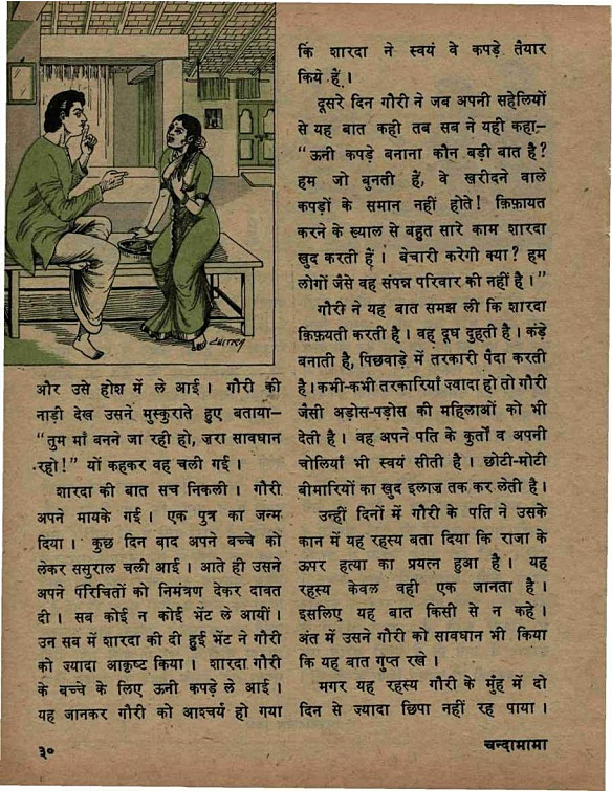 CHITRA
और उसे होश में ले आई । गौरी की
नाड़ी देख उसने मुस्कुराते हुए बताया—
“तुम माँ बनने जा रही हो, ज़रा सावधान
रहो!” यों कहकर वह चली गई ।
शारदा की बात सच निकली । गौरी
अपने मायके गई । एक पुत्र का जन्म
दिया । कुछ दिन बाद अपने बच्चे को
लेकर ससुराल चली आई । आते ही उसने
अपने परिचितों को निमंत्रण देकर दावत
दी । सब कोई न कोई भेंट ले आयीं ।
उन सब में शारदा की दी हुई भेंट ने गौरी
को ज़्यादा आकृष्ट किया । शारदा गौरी
के बच्चे के लिए ऊनी कपड़े ले आई ।
यह जानकर गौरी को आश्चर्य हो गया
कि शारदा ने स्वयं वे कपड़े तैयार
किये हैं ।
दूसरे दिन गौरी ने जब अपनी सहेलियों
से यह बात कही तब सब ने यही कहा—
“ऊनी कपड़े बनाना कौन बड़ी बात है?
हम जो बुनती हैं, वे खरीदने वाले
कपड़ों के समान नहीं होते! क़िफ़ायत
करने के ख्याल से बहुत सारे काम शारदा
खुद करती हैं । बेचारी करेगी क्या? हम
लोगों जैसे वह संपन्न परिवार की नहीं है ।”
गौरी ने यह बात समझ ली कि शारदा
क़िफ़यती करती है । वह दूध दुहती है । कंडे
बनाती है, पिछवाड़े में तरकारी पैदा करती
है । कभी-कभी तरकारियाँ ज्यादा हो तो गौरी
जैसी अड़ोस-पड़ोस की महिलाओं को भी
देती है । वह अपने पति के कुर्तों व अपनी
चोलियाँ भी स्वयं सीती है । छोटी-मोटी
बीमारियों का खुद इलाज तक कर लेती है ।
उन्हीं दिनों में गौरी के पति ने उसके
कान में यह रहस्य बता दिया कि राजा के
ऊपर हत्या का प्रयत्न हुआ है । यह
रहस्य केवल वही एक जानता है ।
इसलिए यह बात किसी से न कहे ।
अंत में उसने गौरी को सावधान भी किया
कि यह बात गुप्त रखे ।
मगर यह रहस्य गौरी के मुँह में दो
दिन से ज़्यादा छिपा नहीं रह पाया ।
३०
चन्दामामा